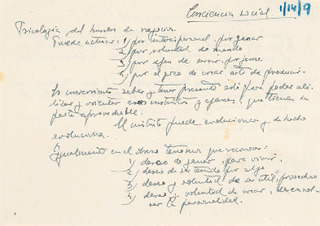 Conciencia social 1/14/9
Psicología del hombre de negocios.
Puede actuar: 1) por interés personal, por ganar
2) por voluntad de mando
3) por afán de crear, por
4) por el gozo de crear, acto de producir.
Es conveniente saber y tener presente así para poder utilizar
y orientar esos instintos y afanes que tienen su
parte aprovechable.
El instinto puede evolucionar y de hecho
evoluciona.
Igualmente en el obrero tenemos que reconocer:
1) deseo de ganar, para vivir.
2) deseo de ser tenido por algo
3) deseo y voluntad de ser útil,
4) deseo y voluntad de crear,
su personalidad.